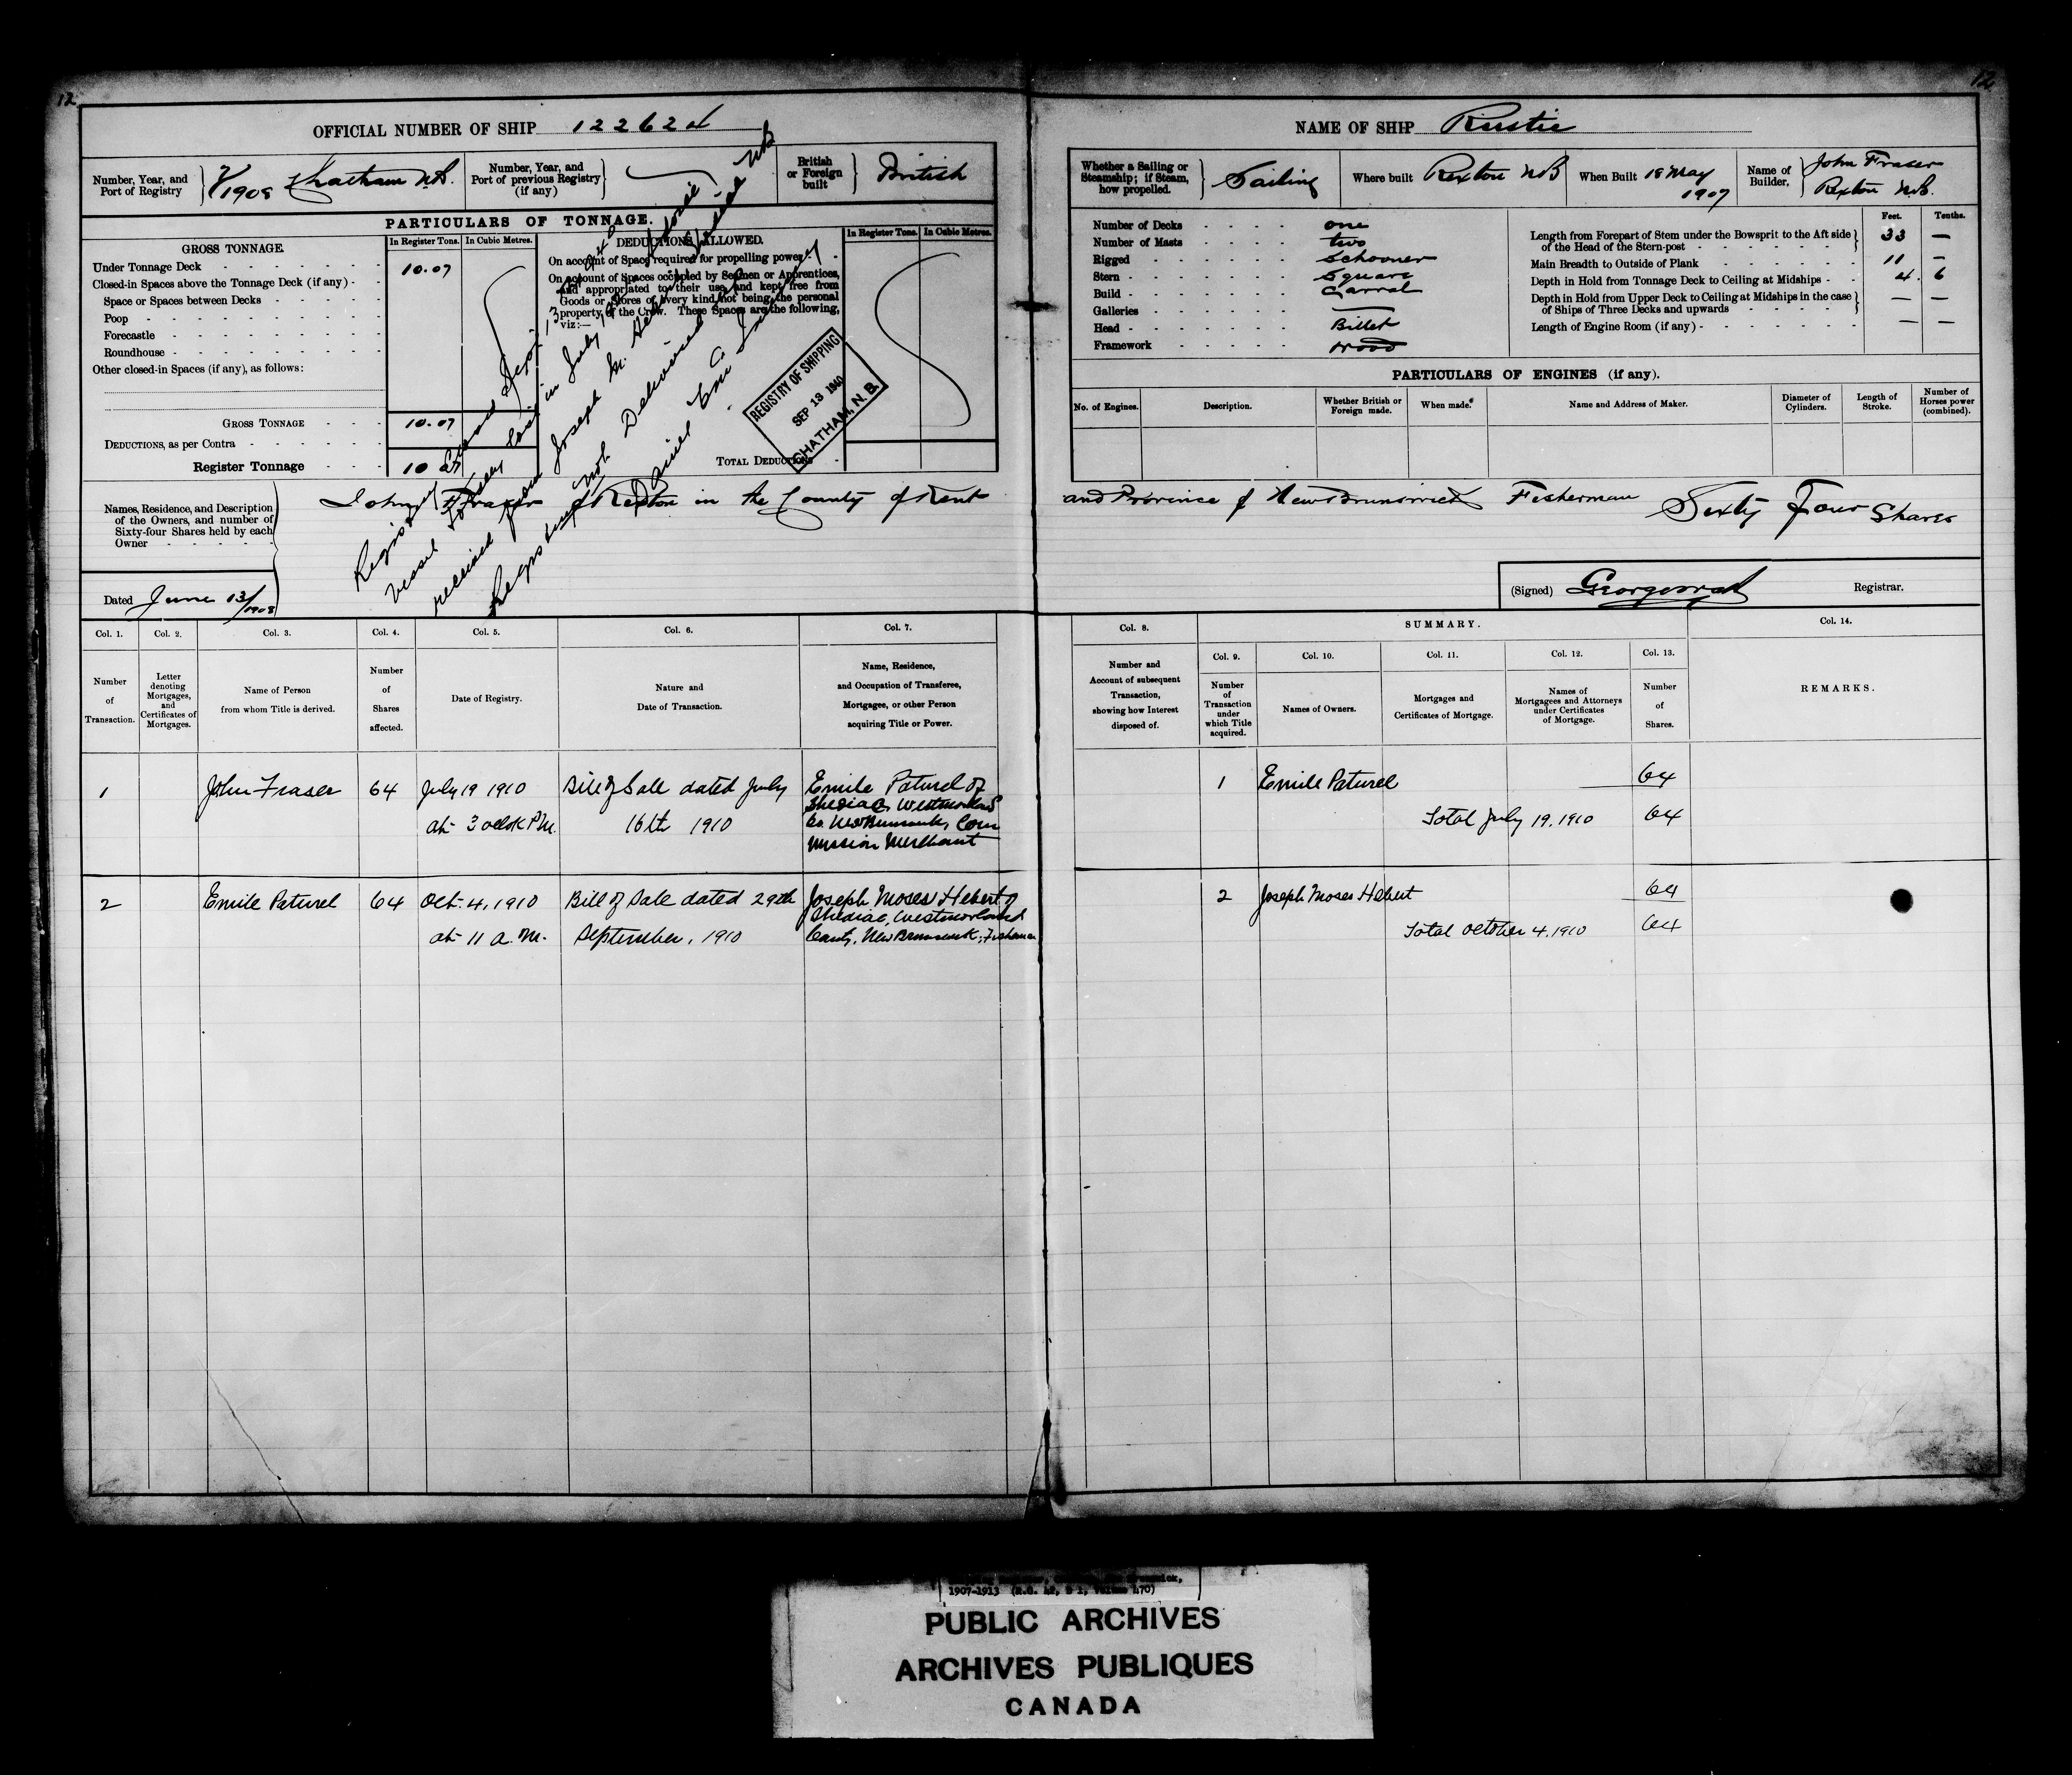 12
12
OFFICIAL NUMBER OF SHIP 122624
Number, Year, and Port of Registry
1908 Chatham NB.
Number, Year, and Port of previous Registry (if any)
British or Foreign built
British
PARTICULARS OF TONNAGE.
GROSS TONNAGE.
In Register Tons.
In Cubic Metres.
DEDUCTIONS ALLOWED.
In Register Tons.
In Cubic Metres.
Under Tonnage Deck 10.07
Closed-in Spaces above the Tonnage Deck (if any)
Space or Spaces between Decks
Poop
Forecastle
Roundhouse
Other closed-in Spaces (if any), as follows:
GROSS TONNAGE 10.07
DEDUCTIONS, as per Contra
Register Tonnage 10
On account of Space required for propelling power
On account of Spaces occupied by Seamen or Apprentices,
and appropriated to their use, and kept free from
Goods or Stores of every kind, not being the personal
property of the Crew. These Spaces are the following,
viz:—
TOTAL DEDUCTIONS
Registry Closed
vessel in July
received from Joseph M.
not Delivered
Daniel
REGISTRY OF SHIPPING
SEP 13 1940
CHATHAM, N. B.
Names, Residence, and Description
of the Owners, and number of
Sixty-four Shares held by each
Owner
John Fraser of Rexton in the County of Kent
Dated June 13/1908
NAME OF SHIP Rustic
Whether a Sailing or Steamship; if Steam, how propelled.
Sailing
Where built Rexton NB
When Built 18 May 1907
Name of Builder, John Fraser Rexton N.B.
Number of Decks one
Number of Masts two
Rigged Schooner
Stern Square
Build Carval
Galleries —
Head Billet
Framework Wood
Feet. Tenths.
Length from Forepart of Stem under the Bowsprit to the Aft side
of the Head of the Stern-post 33 —
Main Breadth to Outside of Plank 11 —
Depth in Hold from Tonnage Deck to Ceiling at Midships 4. 6
Depth in Hold from Upper Deck to Ceiling at Midships in the case
of Ships of Three Decks and upwards — —
Length of Engine Room (if any) — —
PARTICULARS OF ENGINES (if any).
No. of Engines.
Description.
Whether British or Foreign made.
When made.
Name and Address of Maker.
Diameter of Cylinders.
Length of Stroke.
Number of Horses power (combined).
and Province of New Brunswick Fisherman Sixty Four Shares
(Signed)
Registrar.
Col. 1.
Col. 2.
Col. 3.
Col. 4.
Col. 5.
Col. 6.
Col. 7.
Number of Transaction.
Letter denoting Mortgages, and Certificates of Mortgages.
Name of Person from whom Title is derived.
Number of Shares affected.
Date of Registry.
Nature and Date of Transaction.
Name, Residence, and Occupation of Transferee, Mortgagee, or other Person acquiring Title or Power.
Col. 8.
SUMMARY.
Col. 14.
Col. 9.
Col. 10.
Col. 11.
Col. 12.
Col. 13.
Number and Account of subsequent Transaction, showing how Interest disposed of.
Number of Transaction under which Title acquired.
Names of Owners.
Mortgages and Certificates of Mortgage.
Names of Mortgagees and Attorneys under Certificates of Mortgage.
Number of Shares.
REMARKS.
1 John Fraser 64 July 19 1910 Bill of Sale dated July Emile Paturel of
Shediac, Westmorland
at 3 oclok P.M. 16th 1910 Co. New Brunswick, Com
mission Merchant
1 Emile Paturel 64
Total July 19, 1910 64
2 Emile Paturel 64 Oct. 4, 1910 Bill of Sale dated 29th Joseph Moses Hebert of
Shediac, Westmorland
at 11 a.m. September, 1910 County, New Brunswick, Fisherman
2 Joseph Moses Hebert 64
Total October 4, 1910 64
1907-1913
PUBLIC ARCHIVES
ARCHIVES PUBLIQUES
CANADA